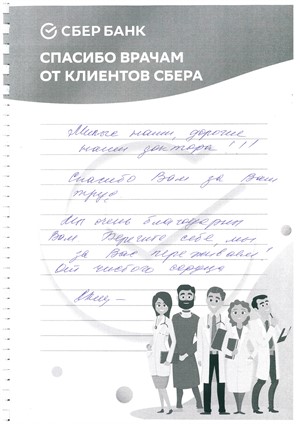 СБЕР БАНК
СПАСИБО ВРАЧАМ
ОТ КЛИЕНТОВ СБЕРА
Милые наши, дорогие
наши доктора!!!
Спасибо Вам за Ваш
труд
Мы очень благодарны
Вам Берегите себя, мы
за Вас переживаем!
От чистого сердца